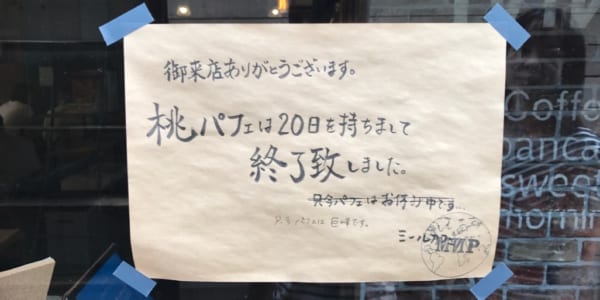 御来店ありがとうございます。
桃パフェは20日を持ちまして
終了致しました。
只今パフェはお休み中です…
只今パフェは巨峰です。
ミールカ
MAP
Coffe
panca
sweet
mornin